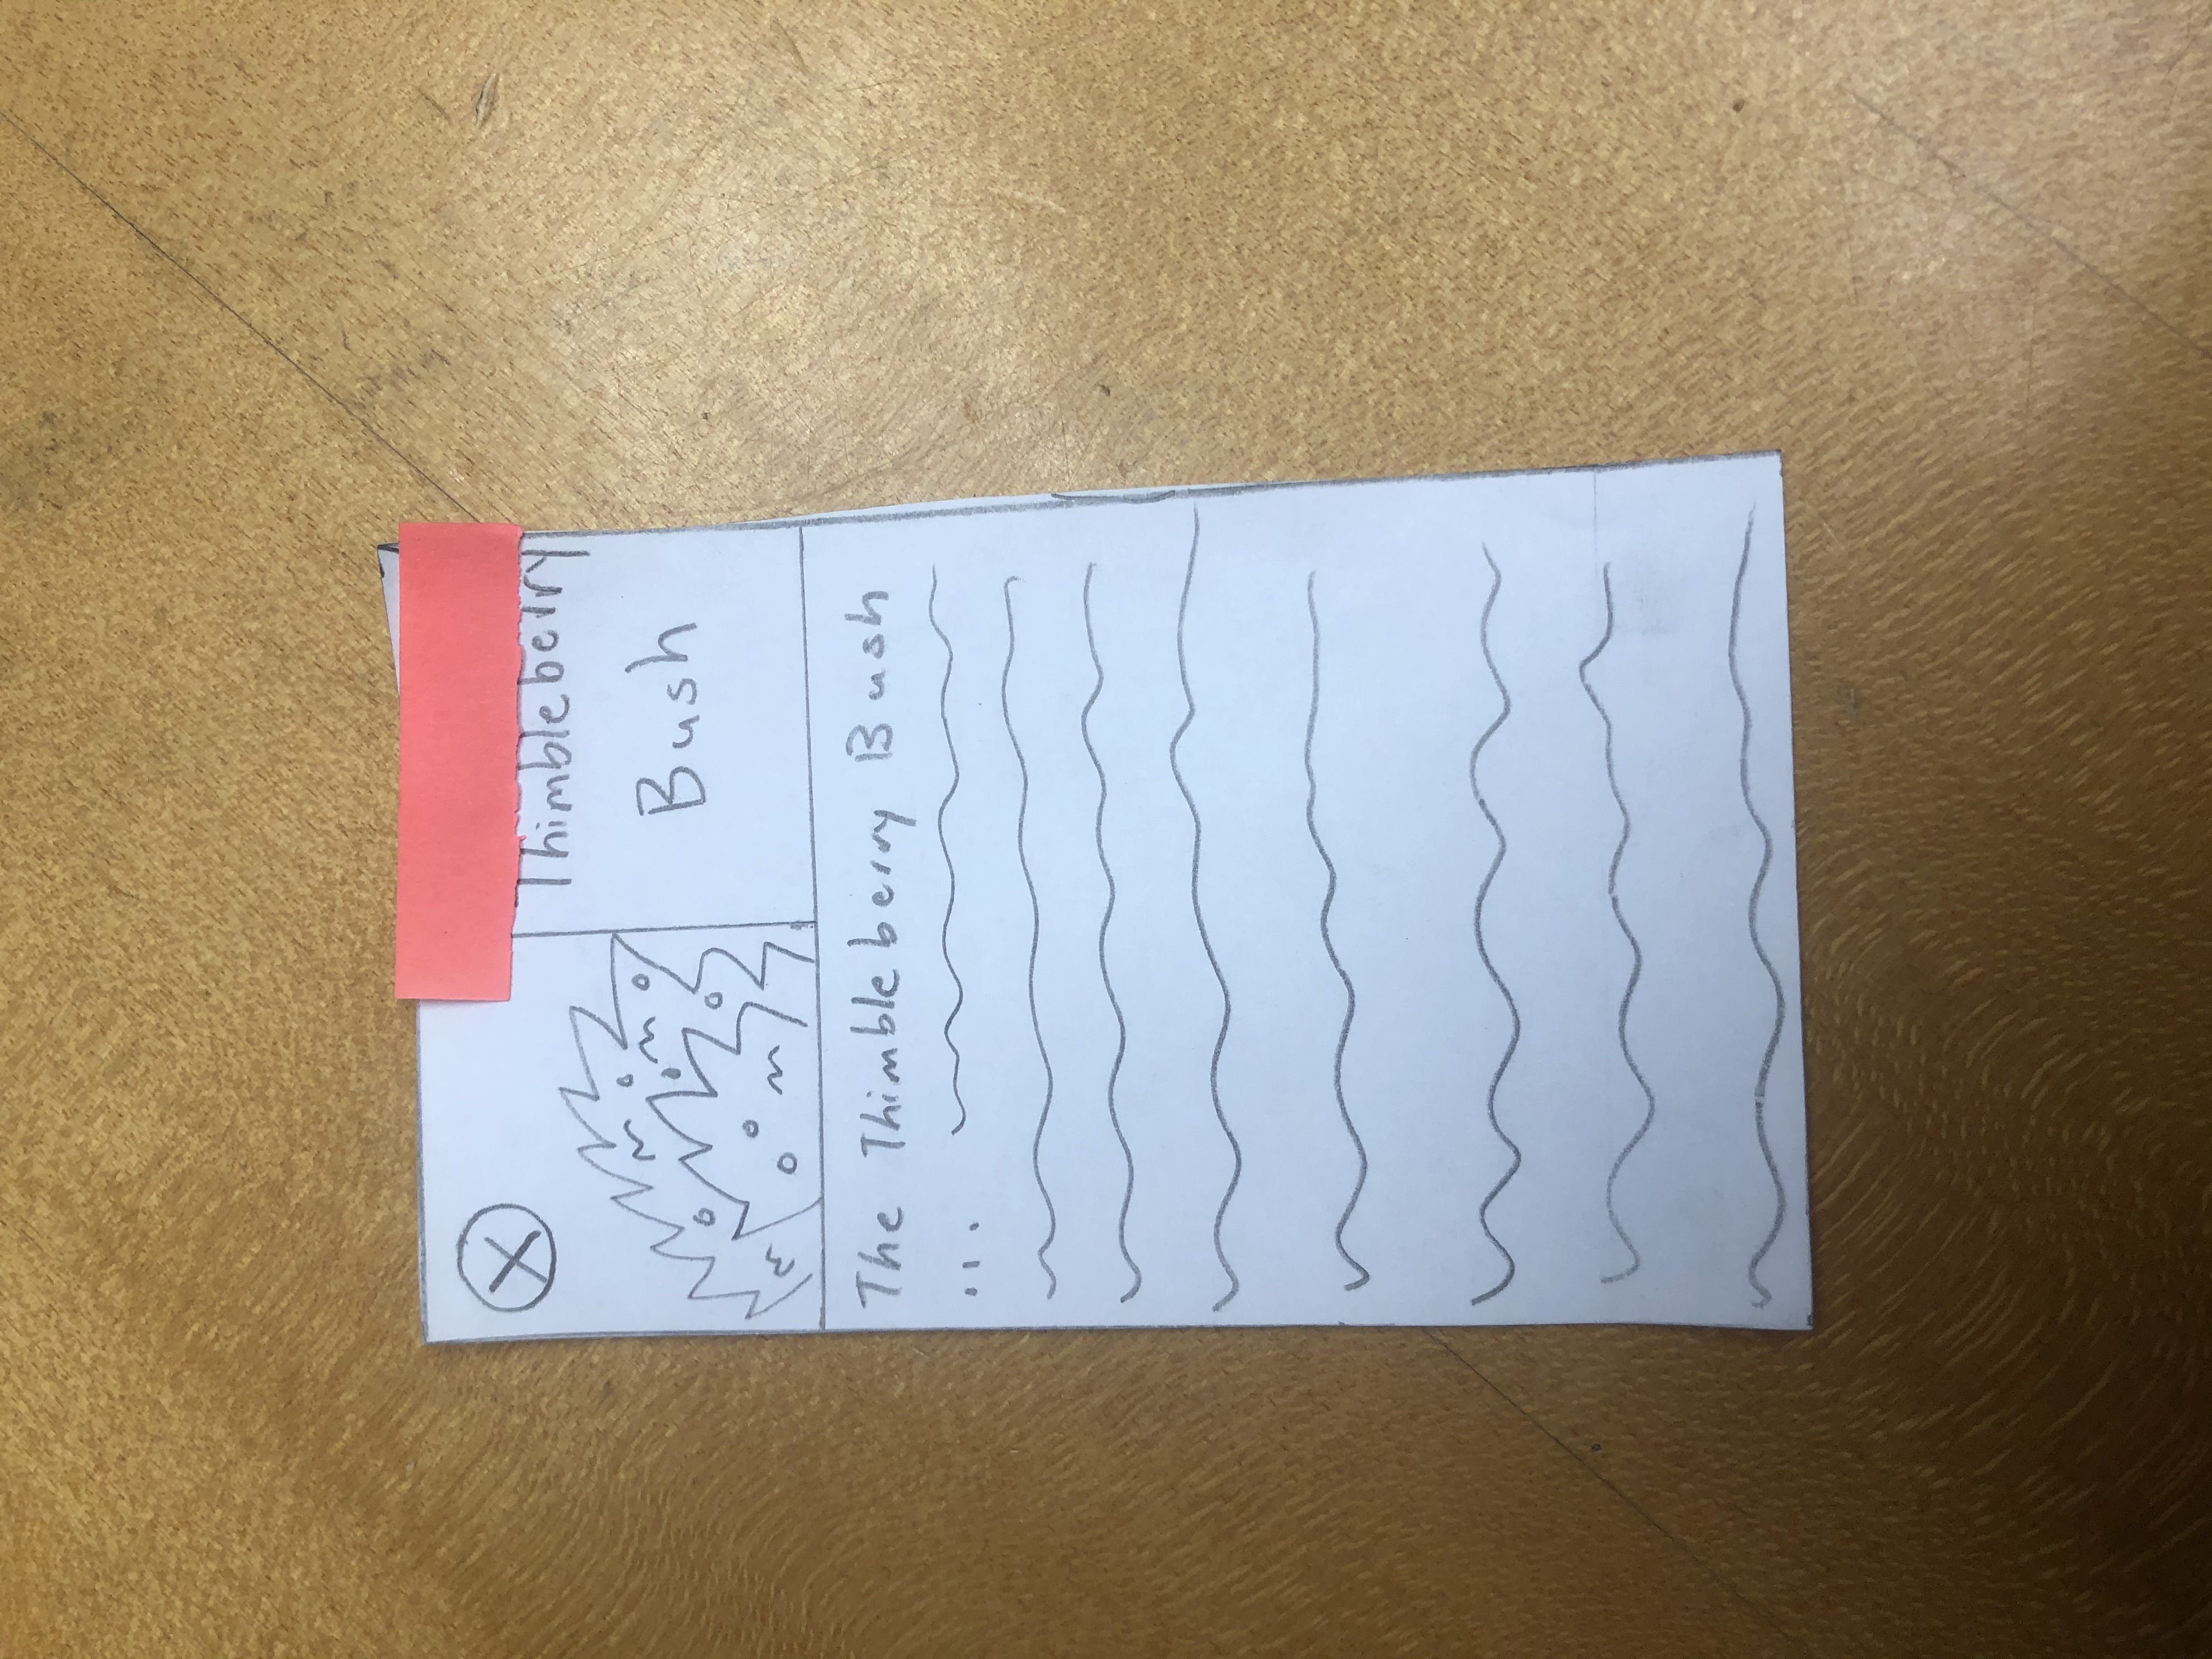 X
Thimbleberry
Bush
The Thimbleberry Bush
...